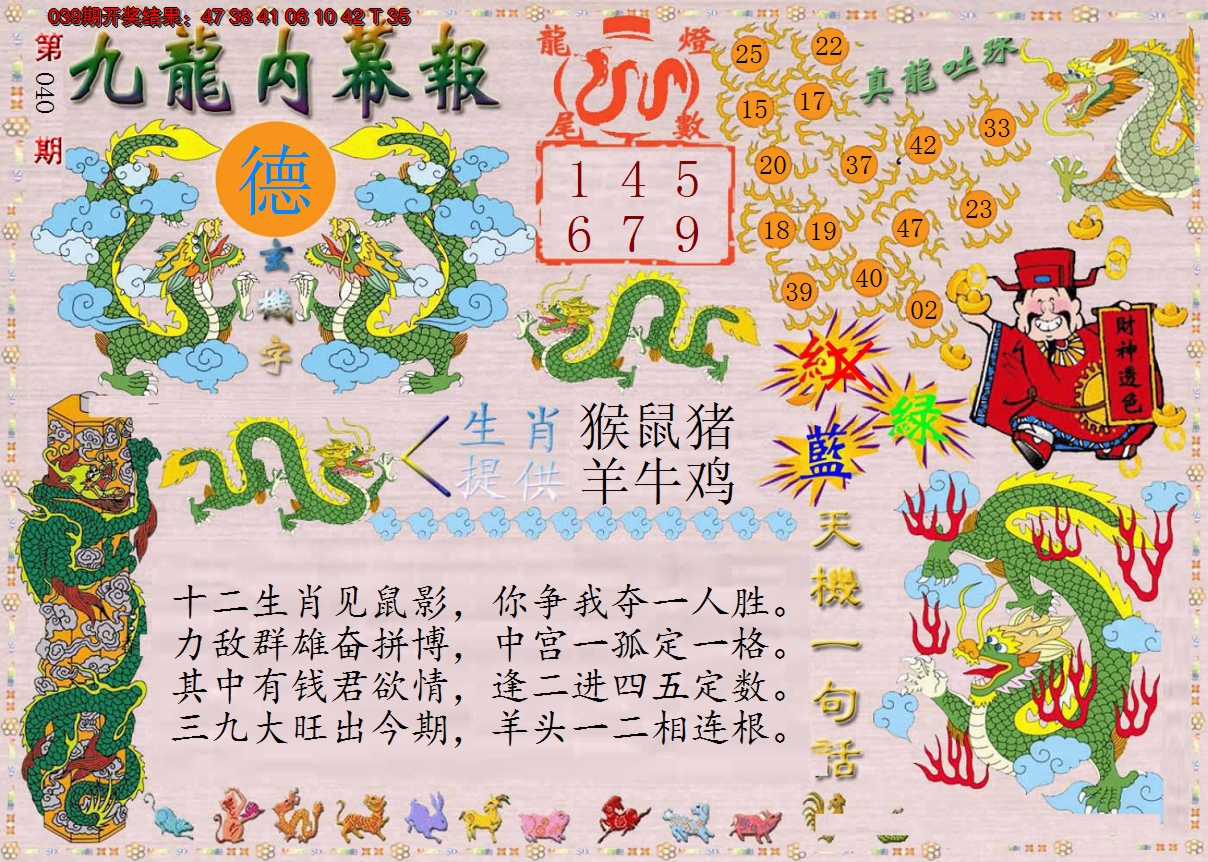 039期开奖结果：47 38 41 06 10 42 T 35
第040期
九龍内幕報
德
玄機字
龍燈
尾數
1 4 5
6 7 9
真龍吐珠
25 22
15 17
33
42
20 37
23
18 19 47
40
39
02
紅
綠
藍
財神透色
生肖 猴鼠猪
提供 羊牛鸡
天機一句話
十二生肖见鼠影，你争我夺一人胜。
力敌群雄奋拼博，中宫一孤定一格。
其中有钱君欲情，逢二进四五定数。
三九大旺出今期，羊头一二相连根。